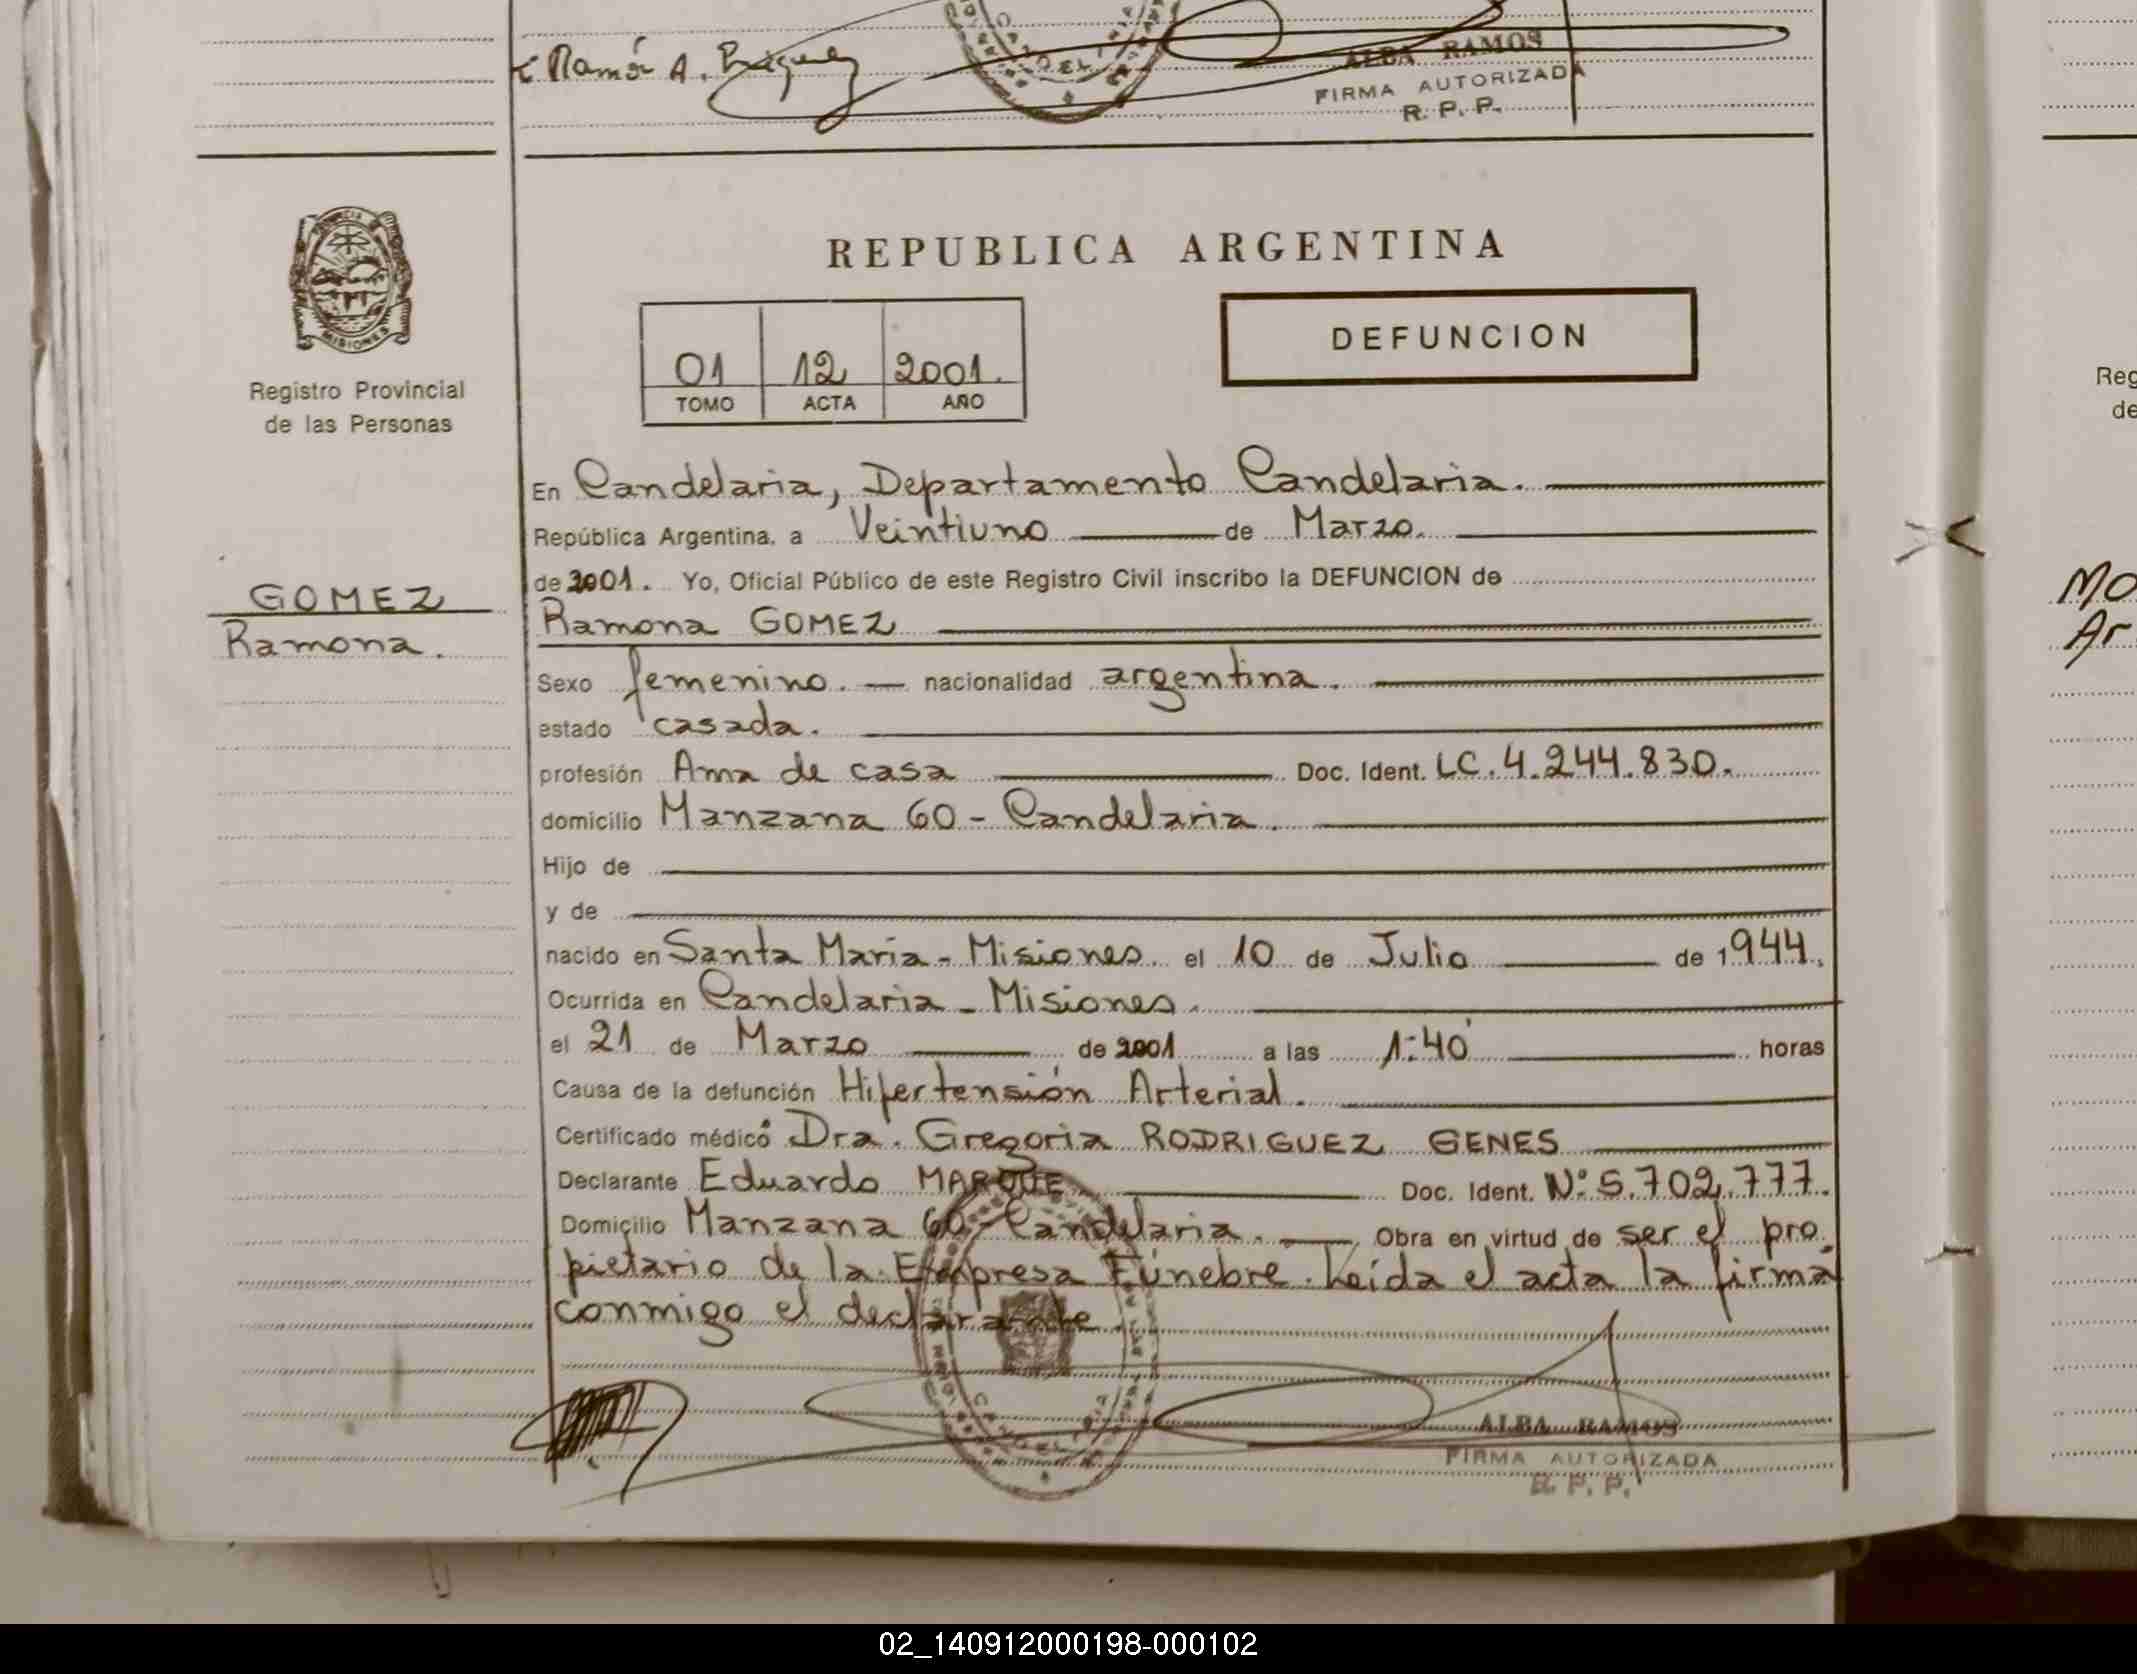 Ramón A.
ALBA RAMOS
FIRMA AUTORIZADA
R. P. P.
MISIONES
Registro Provincial
de las Personas
REPUBLICA ARGENTINA
01 12 2001.
TOMO ACTA AÑO
DEFUNCION
GOMEZ
Ramona.
En Candelaria, Departamento Candelaria.
República Argentina, a Veintiuno de Marzo.
de 2001. Yo, Oficial Público de este Registro Civil inscribo la DEFUNCION de
Ramona GOMEZ
Sexo femenino. — nacionalidad argentina.
estado casada.
profesión Ama de casa Doc. Ident. LC.4.244.830.
domicilio Manzana 60 - Candelaria.
Hijo de
y de
nacido en Santa María - Misiones. el 10 de Julio de 1944.
Ocurrida en Candelaria - Misiones.
el 21 de Marzo de 2001 a las 1:40' horas
Causa de la defunción Hipertensión Arterial.
Certificado médico Dra. Gregoria RODRIGUEZ GENES
Declarante Eduardo MARQUE Doc. Ident. Nº 5.702.777.
Domicilio Manzana 60 - Candelaria. — Obra en virtud de ser el pro
pietario de la Empresa Fúnebre. Leída el acta la firma
conmigo el declarante.
ALBA RAMOS
FIRMA AUTORIZADA
R. P. P.
Reg
de
MO
Ar
02_140912000198-000102